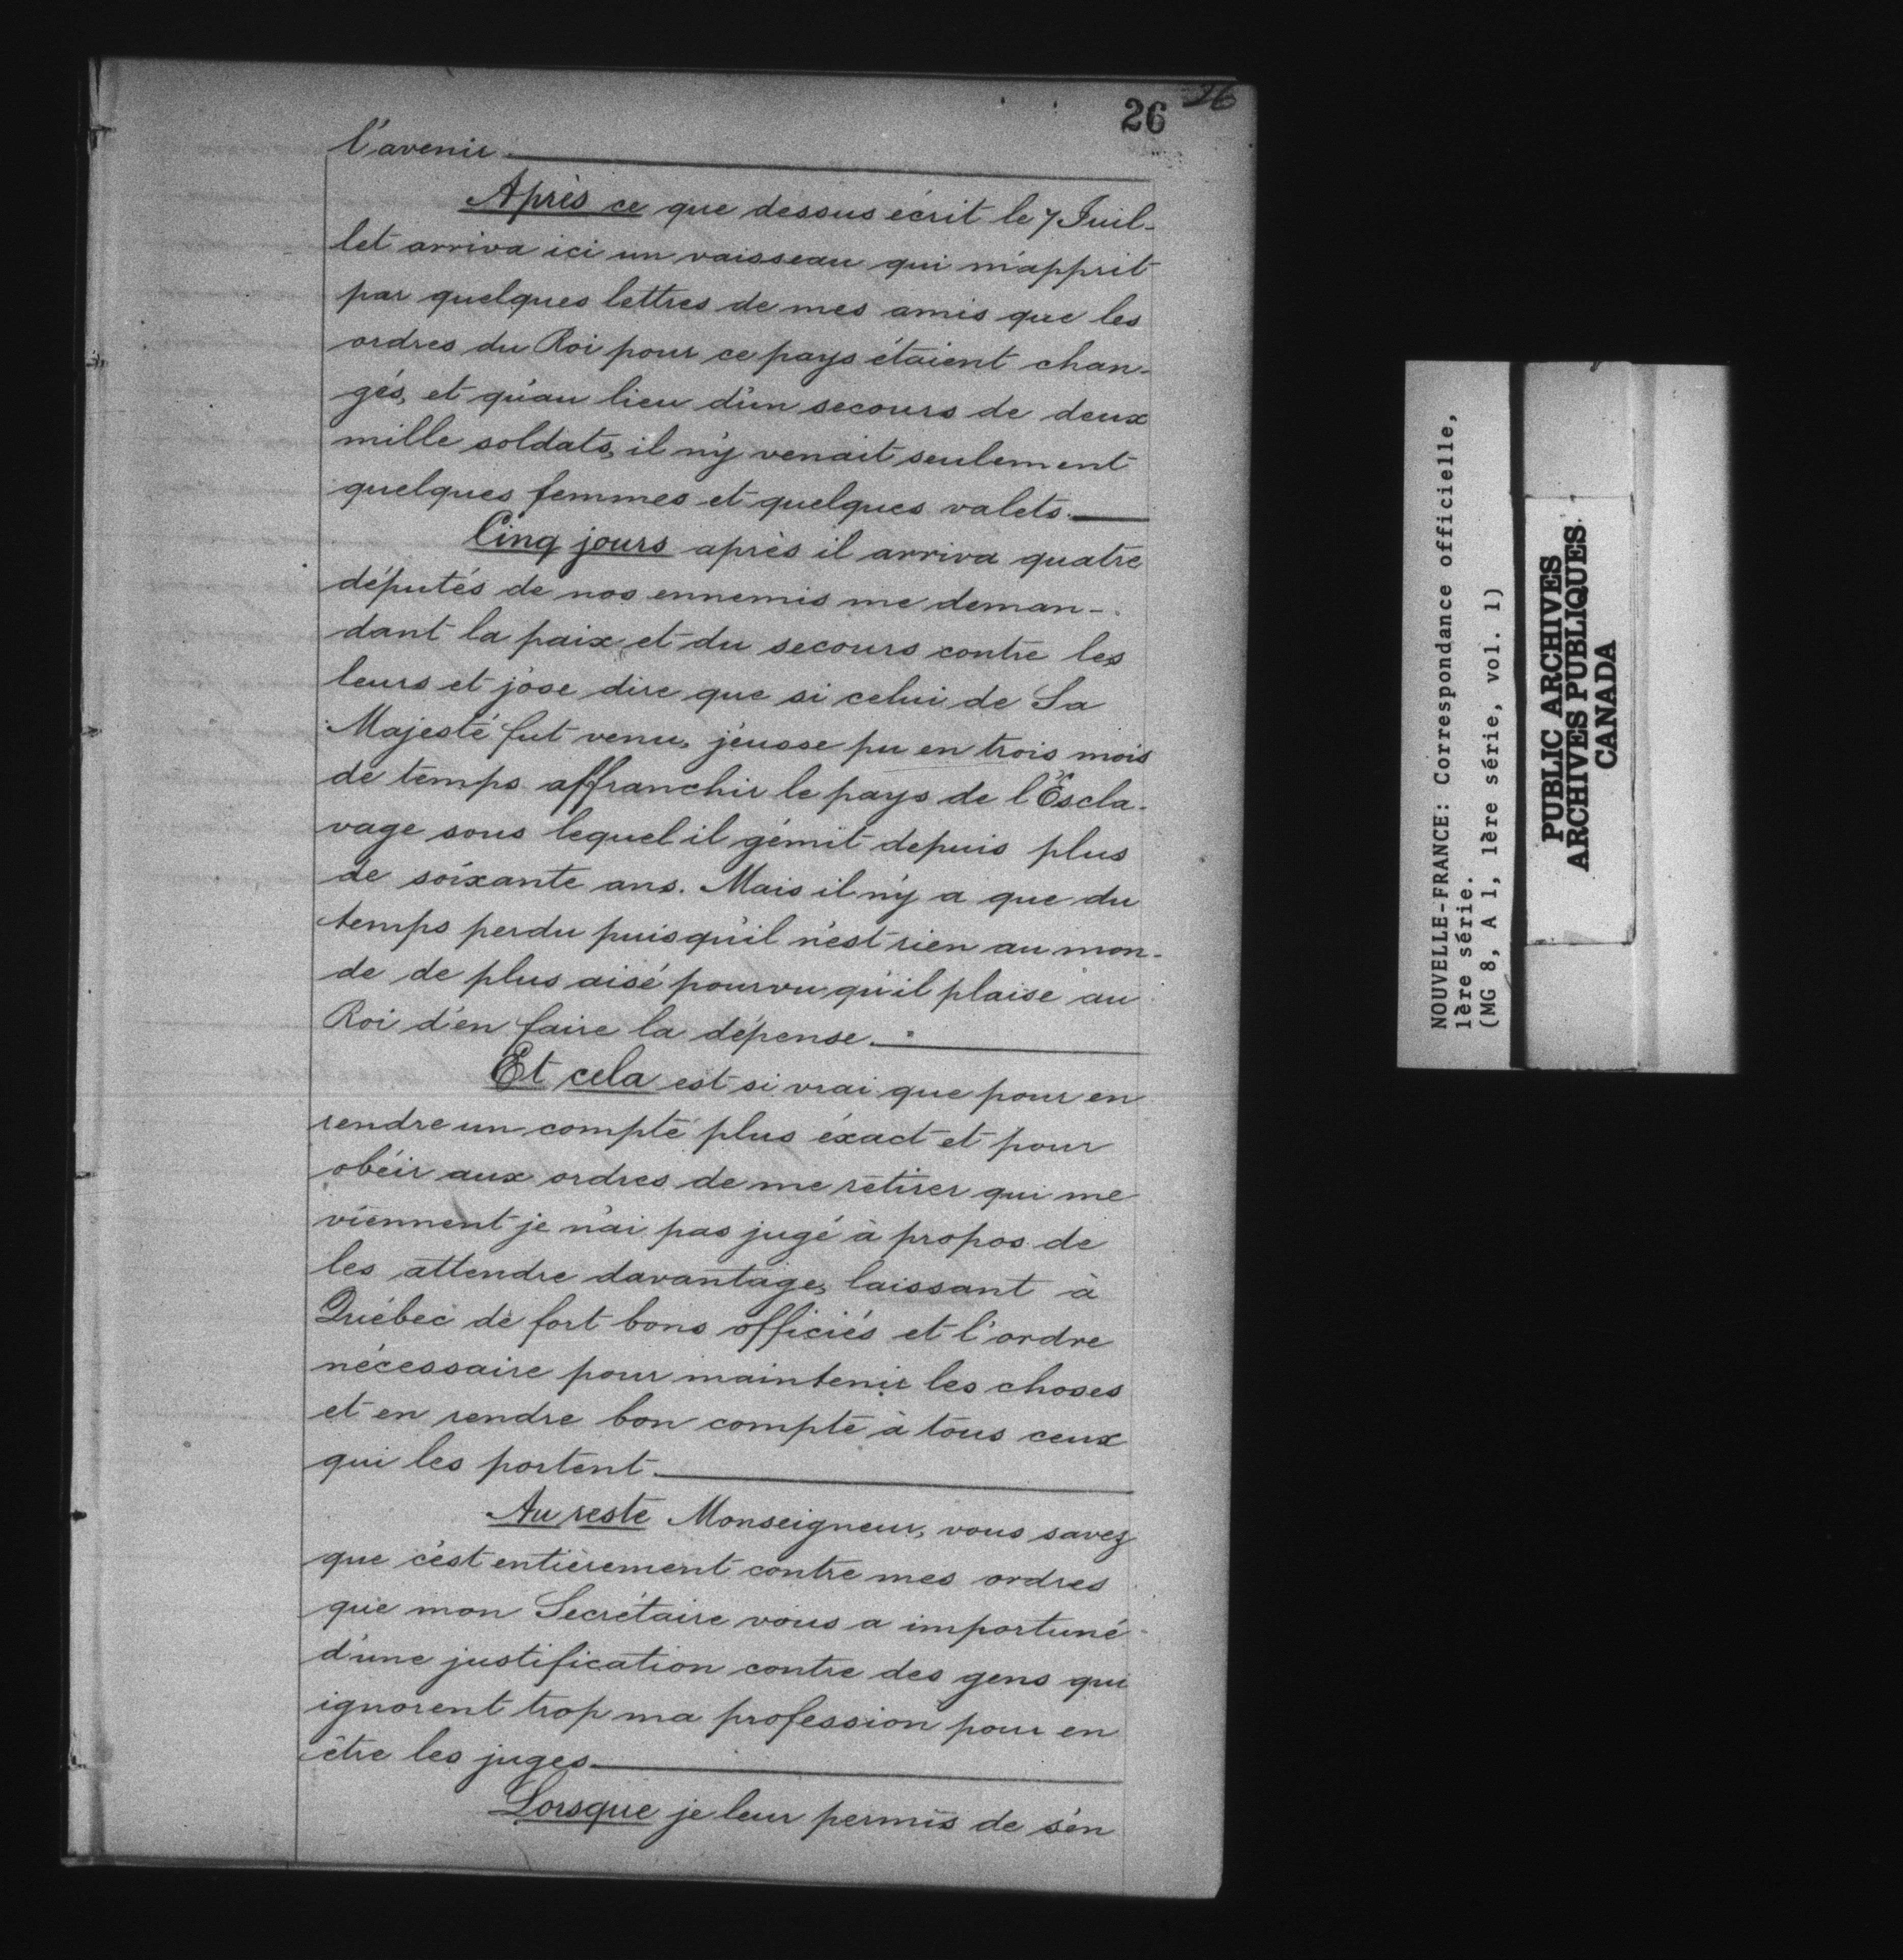 26
26
l'avenir
Après ce que dessus écrit le 7 Juil-
let arriva ici un vaisseau qui m'apprit
par quelques lettres de mes amis que les
ordres du Roi pour ce pays étaient chan-
gés, et qu'au lieu d'un secours de deux
mille soldats, il n'y venait seulement
quelques femmes et quelques valets.
Cinq jours après il arriva quatre
députés de nos ennemis me deman-
dant la paix et du secours contre les
leurs et j'ose dire que si celui de Sa
Majesté fut venu, j'eusse pu en trois mois
de temps affranchir le pays de l'Escla-
vage sous lequel il gémit depuis plus
de soixante ans. Mais il n'y a que du
temps perdu puisqu'il n'est rien au mon-
de de plus aisé pourvu qu'il plaise au
Roi d'en faire la dépense.
Et cela est si vrai que pour en
rendre un compte plus éxact et pour
obéir aux ordres de me retirer qui me
viennent je n'ai pas jugé à propos de
les attendre davantage, laissant à
Québec de fort bons officiés et l'ordre
nécessaire pour maintenir les choses
et en rendre bon compte à tous ceux
qui les portent.
Au reste Monseigneur, vous savez
que c'est entièrement contre mes ordres
que mon Secrétaire vous a importuné
d'une justification contre des gens qui
ignorent trop ma profession pour en
être les juges.
Lorsque je leur permis de s'en
NOUVELLE-FRANCE: Correspondance officielle,
1ère série.
(MG 8, A 1, 1ère série, vol. 1)
PUBLIC ARCHIVES
ARCHIVES PUBLIQUES
CANADA